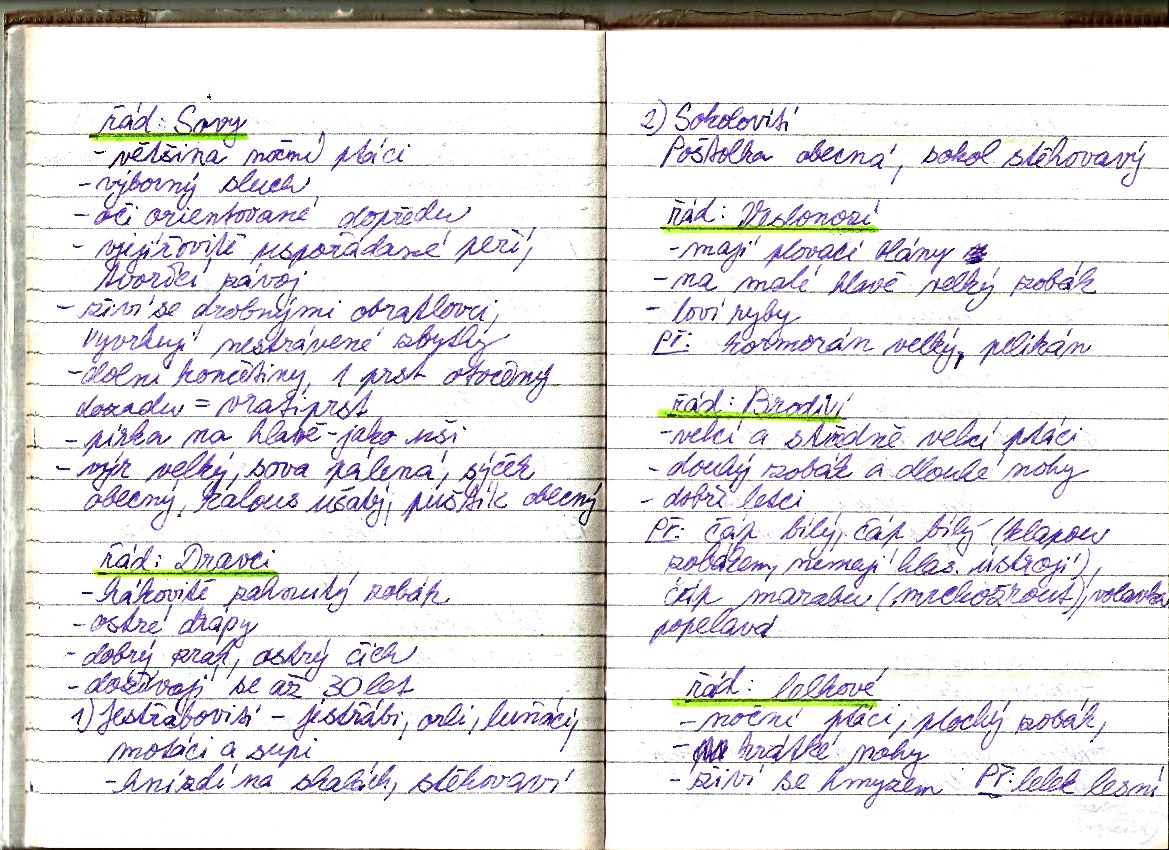 řád: Sovy
- většina noční ptáci
- výborný sluch
- oči orientované dopředu
- vějířovitě uspořádané peří,
tvořící závoj
- živí se drobnými obratlovci,
vyvrhují nestrávené zbytky
- dolní končetiny, 1 prst otočený
dozadu = vratiprst
- pírka na hlavě - jako uši
- výr velký, sova pálená, sýček
obecný, kalous ušatý, puštík obecný
řád: Dravci
- hákovitě zahnutý zobák
- ostré drápy
- dobrý zrak, ostrý čich
- dožívají se až 30 let
1) Jestřábovití - jestřábi, orli, luňáci,
motáci a supi
- hnízdí na skalách, stěhovaví
2) Sokolovití
Poštolka obecná, sokol stěhovavý
řád: Veslonozí
- mají plovací blány
- na malé hlavě velký zobák
- loví ryby
Př: Kormorán velký, pelikán
řád: Brodiví
- velcí a středně velcí ptáci
- dlouhý zobák a dlouhé nohy
- dobří letci
Př: čáp bílý, čáp bílý (klapou
zobákem, nemají hlas. ústrojí),
čáp marabu (mrchožrout), volavka
popelavá
řád: Lelkové
- noční ptáci, plochý zobák,
- krátké nohy
- živí se hmyzem Př: lelek lesní